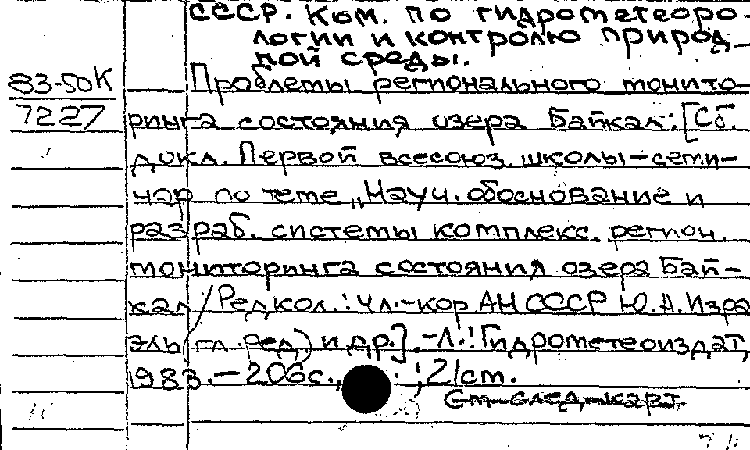 СССР. Ком. по гидрометеоро-
логии и контролю природ-
ной среды.
83-50К
Проблемы регионального монито-
7227
ринга состояния озера Байкал: [Сб.
докл. Первой всесоюз. школы-семи-
нар по теме „Науч. обоснование и
разраб. системы комплекс. регион.
мониторинга состояния озера Бай-
кал / Редкол.: чл.-кор АН СССР Ю.А. Изра
эль (гл. ред.) и др.]. -Л.: Гидрометеоиздат,
1983. - 206 с., ; 21 см.
См. след. карт.